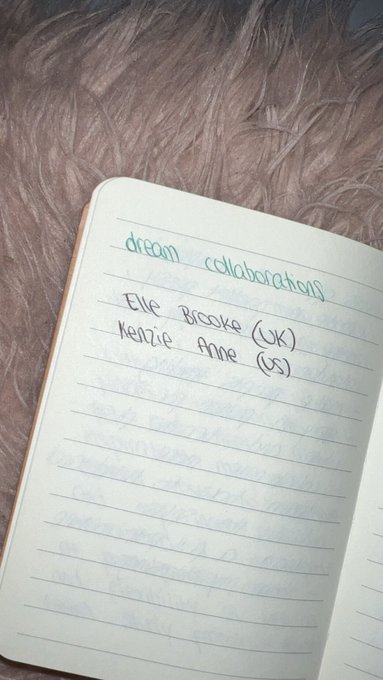 dream collaborations
Elle Brooke (UK)
Kenzie Anne (US)